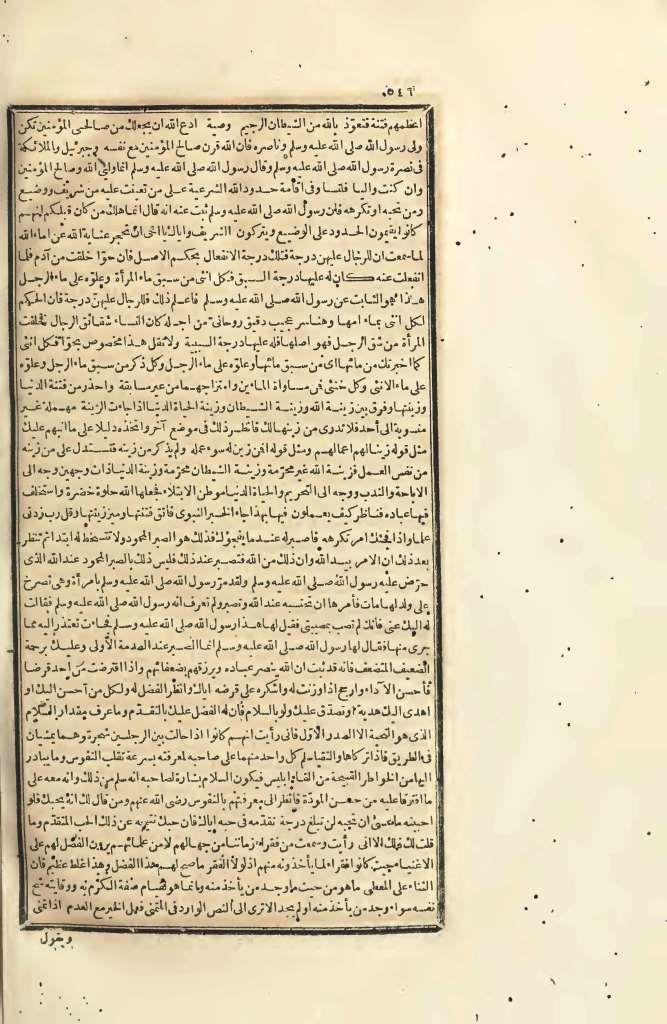 ٥٤٦
اعظمهم فتنة فتعوّذ بالله من الشيطان الرجيم وصية ادع الله ان يجعلك من صالحى المؤمنين تكن
ولى رسول الله صلى الله عليه وسلم وناصره فان الله قرن صالح المؤمنين مع نفسه وجبرئيل والملائكة
فى نصرة رسول الله صلى الله عليه وسلم وقال رسول الله صلى الله عليه وسلم انما وليى الله وصالح المؤمنين
وان كنت واليا فلتساو فى اقامة حدود الله الشرعية على من تعينت عليه من شريف ووضيع
ومن تحبه او تكرهه فان رسول الله صلى الله عليه وسلم ثبت عنه انه قال انما هلك من كان قبلكم انهم
كانوا يقيمون الحدود على الوضيع ويتركون الشريف واياك يا اخى ان تحجر عناية الله عن اماء الله
لما سمعت ان للرجال عليهن درجة فتلك درجة الانفعال بحكم الاصل فان حوّا خلقت من آدم فلما
انفعلت عنه كان له عليها درجة السبق فكل انثى من سبق ماء المرأة وعلوّه على ماء الرجل
هذا هو الثابت عن رسول الله صلى الله عليه وسلم فاعلم ذلك فللرجال عليهنّ درجة فان الحكم
لكل انثى بماء امها وهنا سر عجيب دقيق روحانى من اجله كان النساء شقائق الرجال فخلقت
المرأة من شق الرجل فهو اصلها فله عليها درجة السببية ولا تقل هذا مخصوص بحوّا فكل انثى
كما اخبرتك من مائها اى من سبق مائها وعلوّه على ماء الرجل وكل ذكر من سبق ماء الرجل وعلوّه
على ماء الانثى وكل خنثى فمن مساواة الماءين وامتزاجهما من غير مسابقة واحذر من فتنة الدنيا
وزينتها وفرق بين زينة الله وزينة الشيطان وزينة الحياة الدنيا اذا جاءت الزينة مهملة غير
منسوبة الى أحد فلا تدرى من زينها لك فانظر ذلك فى موضع آخر واتخذه دليلا على ما انبهم عليك
مثل قوله زينا لهم اعمالهم ومثل قوله افمن زين له سوء عمله ولم يذكر من زينه فتستدل على من زينه
من نفس العمل فزينة الله غير محرّمة وزينة الشيطان محرّمة وزينة الدنيا ذات وجهين وجه الى
الاباحة والندب ووجه الى التحريم والحياة الدنيا موطن الابتلاء فجعلها الله حلوة خضرة واستخلف
فيها عباده فناظر كيف يعملون فيها بهذا جاء الخبر النبوى فاتق فتنتها وميز زينتها وقل رب زدنى
علما واذا فجئك امر تكرهه فاصبر له عندما يفجؤك فذلك هو الصبر المحمود ولا تتسخط له ابتداء ثم تنظر
بعد ذلك ان الامر بيد الله وان ذلك من الله فتصبر عند ذلك فليس ذلك بالصبر المحمود عند الله الذى
حرّض عليه رسول الله صلى الله عليه وسلم ولقد مرّ رسول الله صلى الله عليه وسلم بامرأة وهى تصرخ
على ولد لها مات فأمرها ان تحتسبه عند الله وتصبر ولم تعرف انه رسول الله صلى الله عليه وسلم فقالت
له اليك عنى فانك لم تصب بمصيبتى فقيل لها هذا رسول الله صلى الله عليه وسلم فجاءت تعتذر اليه مما
جرى منها فقال لها رسول الله صلى الله عليه وسلم انما الصبر عند الصدمة الأولى وعليك برحمة
الضعيف المتضعف فانه قد ثبت ان الله ينصر عباده ويرزقهم بضعفائهم واذا اقترضت من احد قرضا
فأحسن الاداء وارجح اذا وزنت له واشكره على قرضه اياك وانظر الفضل له ولكل من أحسن اليك او
اهدى اليك هدية او تصدّق عليك ولو بالسلام فان له الفضل عليك بالتقدّم وما عرف مقدار السلام
الذى هو التحية الا الصدر الاوّل فانى رأيت انهم كانوا اذا حالت بين الرجلين شجرة وهما يمشيان
فى الطريق فاذا تركاها والتقيا سلم كل واحد منهما على صاحبه لمعرفته بسرعة تقلب النفوس وما يبادر
اليها من الخواطر القبيحة من القاء ابليس فيكون السلام بشارة لصاحبه انه سلم من ذلك وانه معه على
ما افترقا عليه من حسن المودّة فانظر الى معرفتهم بالنفوس رضى الله عنهم ومن قال لك انه يحبك فلو
احببته ما عسى ان تحبه لن تبلغ درجة تقدّمه فى حبه اياك فان حبك نتيجة عن ذلك الحب المتقدّم وما
قلت لك ذلك الا انى رأيت وسمعت من فقراء زماننا من جهالهم لا من علمائهم يرون الفضل لهم على
الاغنياء حيث كانوا فقراء لما يأخذونه منهم اذ لولا الفقر ما صح لهم هذا الفضل وهذا غلط عظيم فان
الثناء على المعطى ما هو من حيث ما وجد من يأخذ منه وانما هو لقيام صفة الكرم به ووقايته شح
نفسه سواء وجد من يأخذ منه او لم يجد الا ترى الى النص الوارد فى المتمنى فعل الخير مع العدم اذا تمنى
ويقول